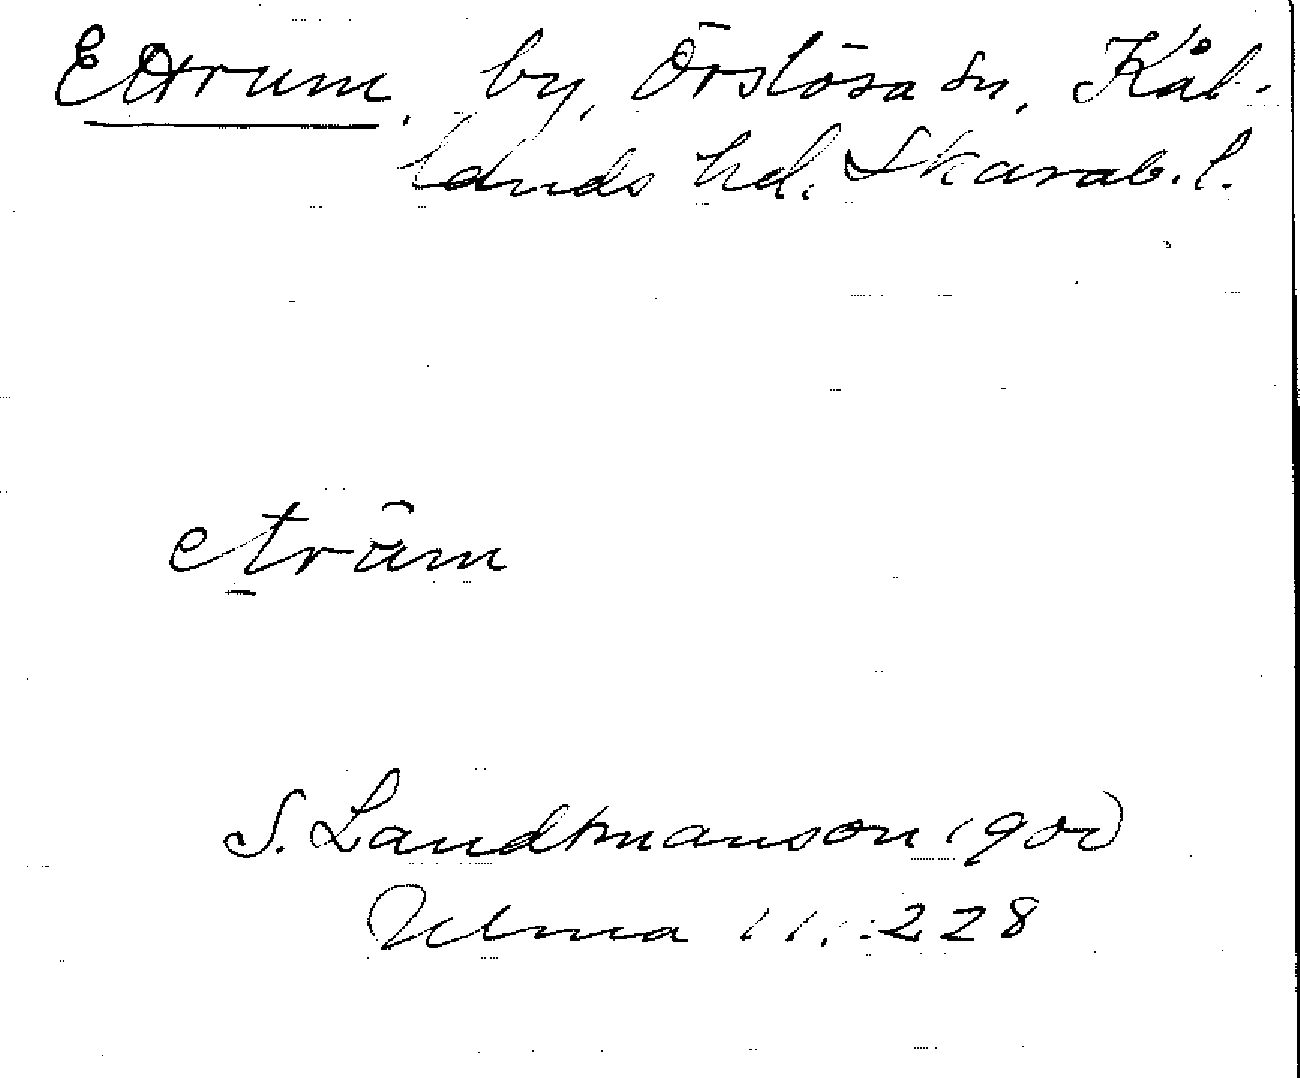 Ettrum, by, Örslösa sn, Kål-
lands hd. Skarab. l.
eträm
S. Landtmanson 1900
Ulma 11:228